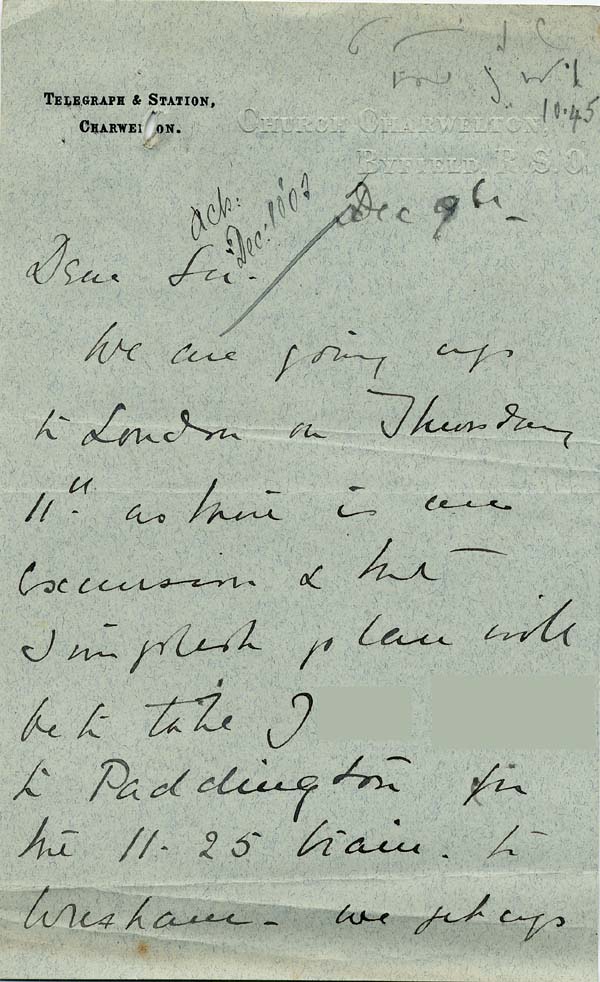 TELEGRAPH & STATION,
CHARWELTON.
10.45
CHURCH CHARWELTON,
BYFIELD, R.S.O.
ack:
Dec: 10 03
Dec 9th
Dear Sir.
We are going up
to London on Thursday
11th. as there is an
excursion & the
simplest plan will
be to take J
to Paddington for
the 11.25 train. to
Wrexham - we get up